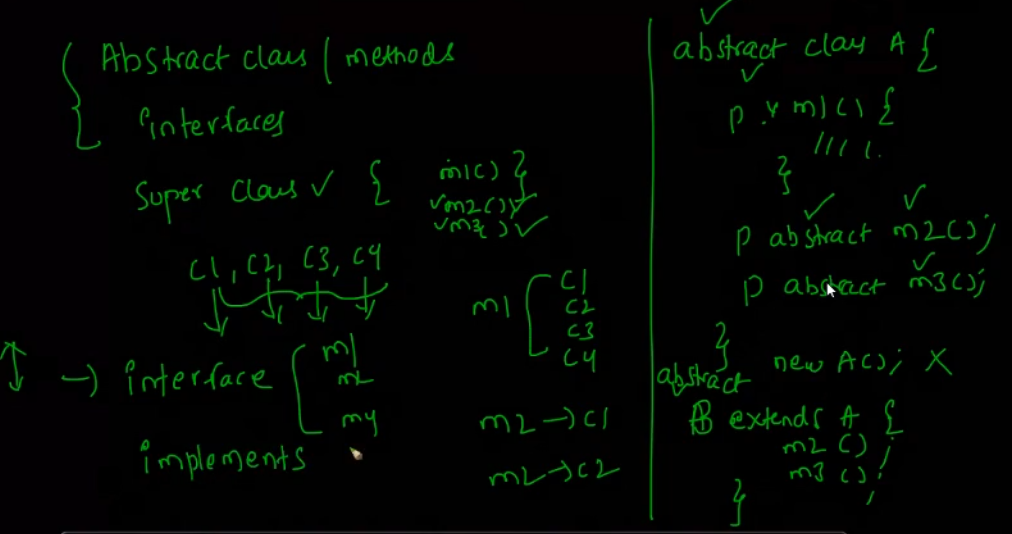 Abstract class | methods
interfaces
Super Class ✓ { m1() }
✓m2() ✓
✓m3() ✓
C1, C2, C3, C4
m1 [ C1
C2
C3
C4
→ interface [ m1
m2
my
implements
m2 → C1
m2 → C2
abstract class A {
p.v m1() {
//// .
}
p abstract m2();
p abstract m3();
}
new A(); X
abstract
B extends A {
m2 () ;
m3 () ;
}